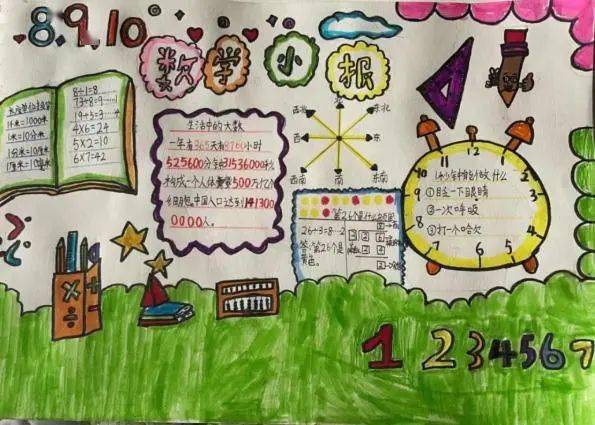 8.9.10
数学小报
1千米=1000米
1米=10分米
1分米=10厘米
1厘米=10毫米
8÷1=8
73÷8=9……
19÷5=3……4
4×6=24
5×2=10
6×7=42
生活中的大数
一年有365天有8760小时
525600分钟31536000秒
构成一个人体需要500万亿个
目前,中国人口达到141300
0000人。
北
东北
东
东南
南
西南
西
西北
第26个是什么颜色
26÷3=8…2
答:第26个是
黄色。
1秒钟能做什么
①目去一下眼睛
②一次呼吸
③打一个哈欠
12
1
2
3
4
5
6
7
8
9
10
11
1 2 3 4 5 6 7